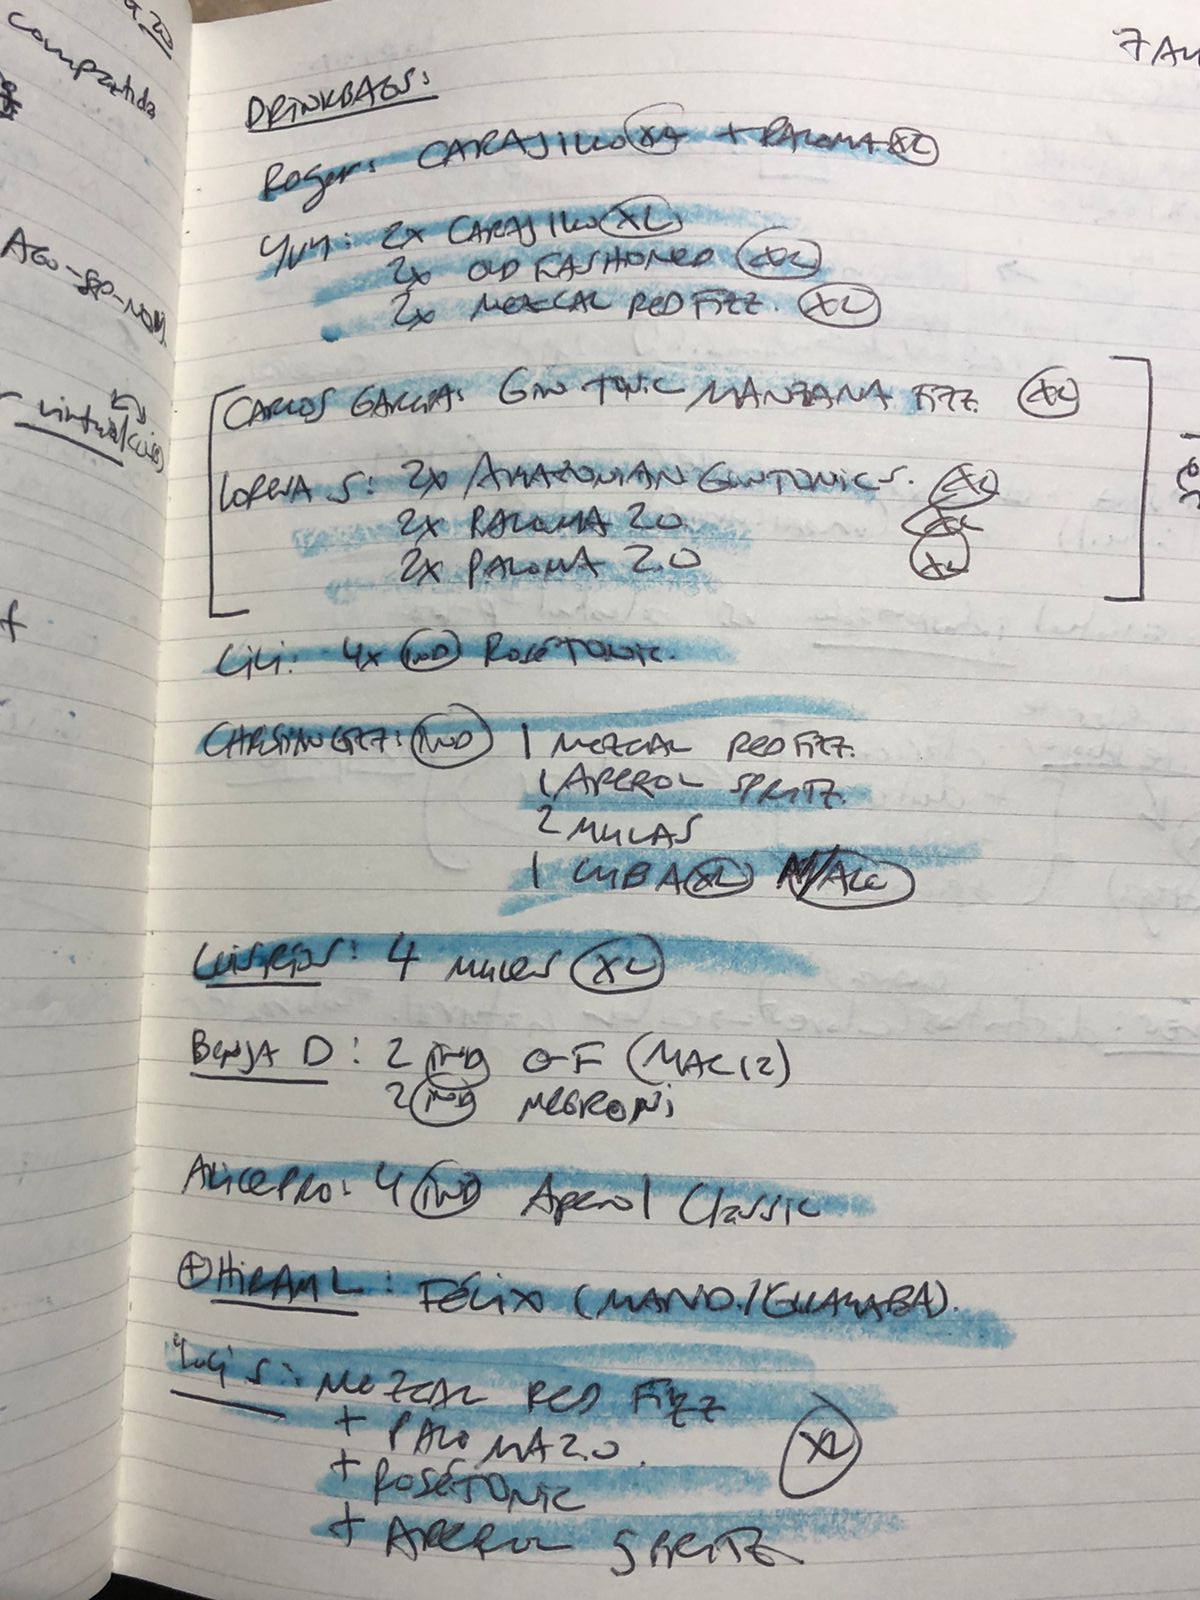 compartida
AGO-SEP-NOV.
virtual
7 AU
DRINKBAGS:
Roger: CARAJILLO XL + PALOMA XL
YUY: 2x CARAJILLO XL
2x OLD FASHIONED XL
2x MEZCAL RED FIZZ. XL
CARLOS GARCIA: GIN TONIC MANZANA FIZZ XL
LORENA S: 2x AMAZONIAN GINTONICS. XL
2x PALOMA 2.0 XL
2x PALOMA 2.0 XL
LiLi: 4x IND ROSÉTONIC.
CHRISTIAN GTZ: IND 1 MEZCAL RED FIZZ.
1 APEROL SPRITZ.
2 MULAS
1 CUBA XL
LUIS RIOS: 4 MULES XL
BENJA D: 2 IND O-F (MAC12)
2 IND NEGRONI
ALICEPRO: 4 IND Aperol Classic
+ HIRAM L: FÉLIX (MANGO/GUAYABA).
S: MEZCAL RED FIZZ
+ PALOMA 2.0. XL
+ ROSÉTONIC
+ APEROL SPRITZ